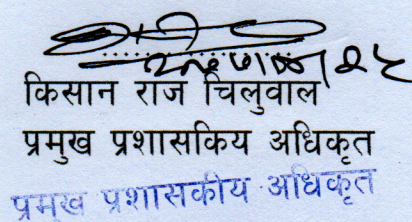 किसान राज चिलुवाल
प्रमुख प्रशासकिय अधिकृत
प्रमख प्रशासकीय अधिकृत